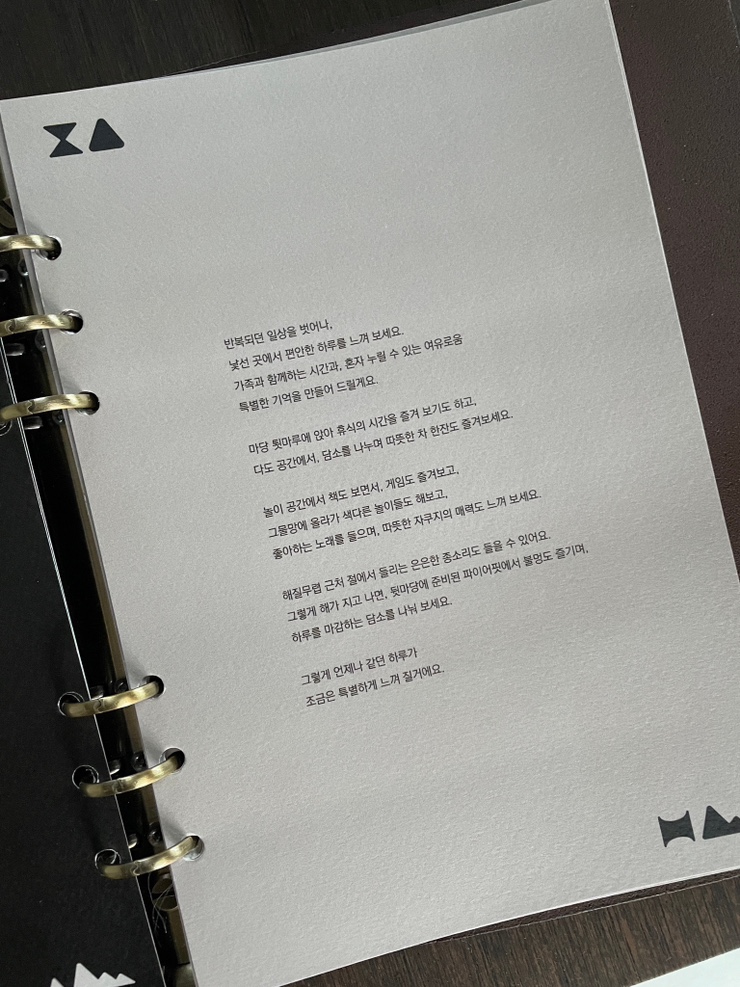 반복되던 일상을 벗어나,
낯선 곳에서 편안한 하루를 느껴 보세요.
가족과 함께하는 시간과, 혼자 누릴 수 있는 여유로움
특별한 기억을 만들어 드릴게요.
마당 툇마루에 앉아 휴식의 시간을 즐겨 보기도 하고,
다도 공간에서, 담소를 나누며 따뜻한 차 한잔도 즐겨보세요.
놀이 공간에서 책도 보면서, 게임도 즐겨보고,
그물망에 올라가 색다른 놀이들도 해보고,
좋아하는 노래를 들으며, 따뜻한 자쿠지의 매력도 느껴 보세요.
해질무렵 근처 절에서 들리는 은은한 종소리도 들을 수 있어요.
그렇게 해가 지고 나면, 뒷마당에 준비된 파이어핏에서 불멍도 즐기며,
하루를 마감하는 담소를 나눠 보세요.
그렇게 언제나 같던 하루가
조금은 특별하게 느껴 질거에요.